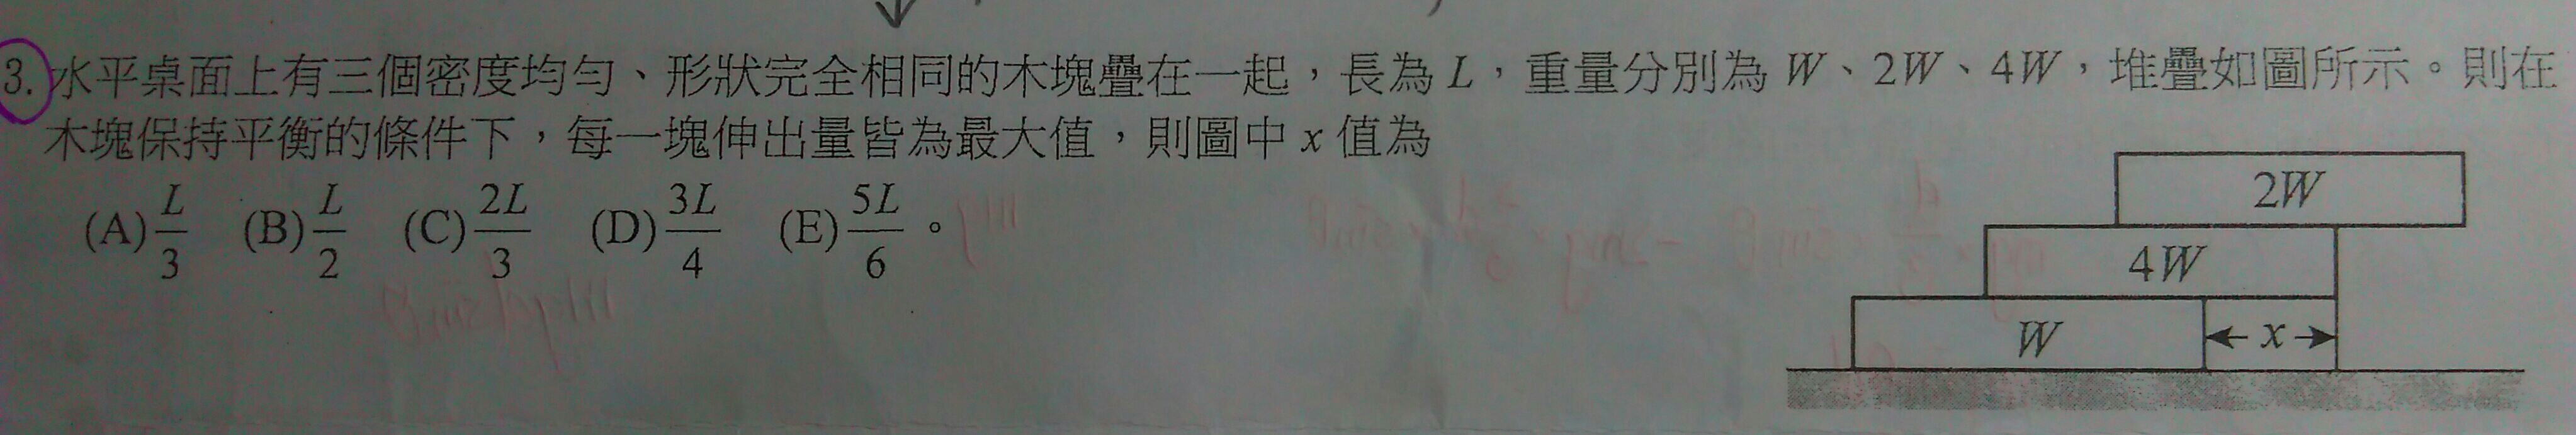 3. 水平桌面上有三個密度均勻、形狀完全相同的木塊疊在一起，長為 L，重量分別為 W、2W、4W，堆疊如圖所示。則在
木塊保持平衡的條件下，每一塊伸出量皆為最大值，則圖中 x 值為
(A) L/3 (B) L/2 (C) 2L/3 (D) 3L/4 (E) 5L/6 。
2W
4W
W
x